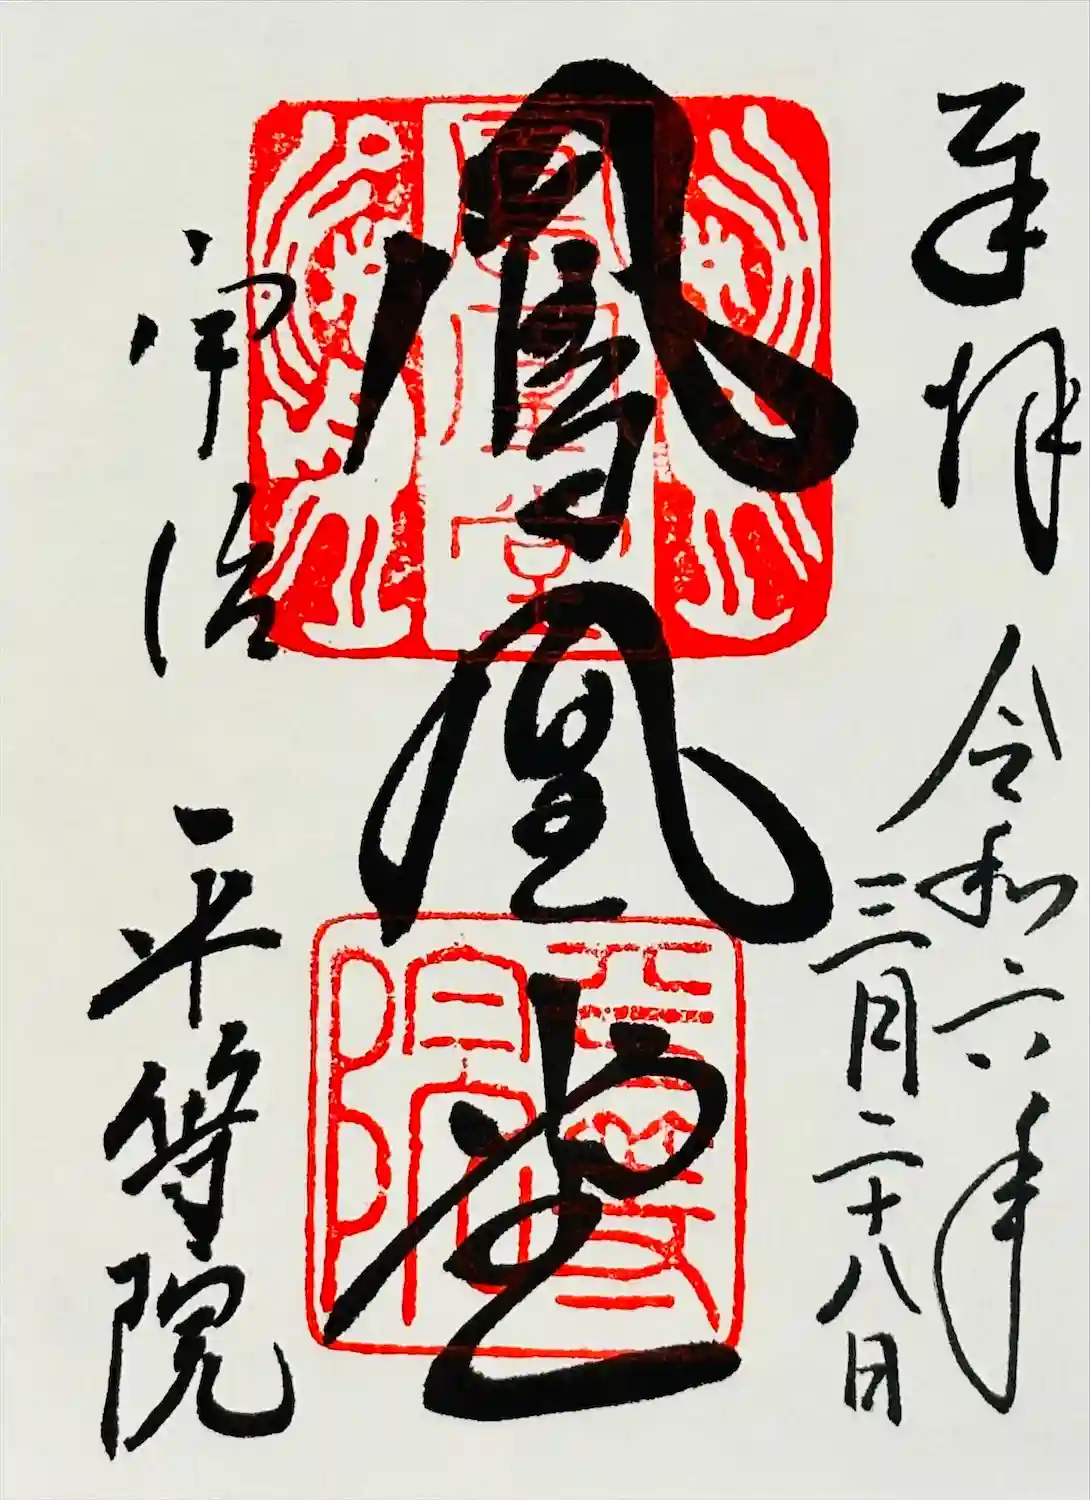 奉拝 令和六年
三月二十八日
鳳凰堂
宇治 平等院